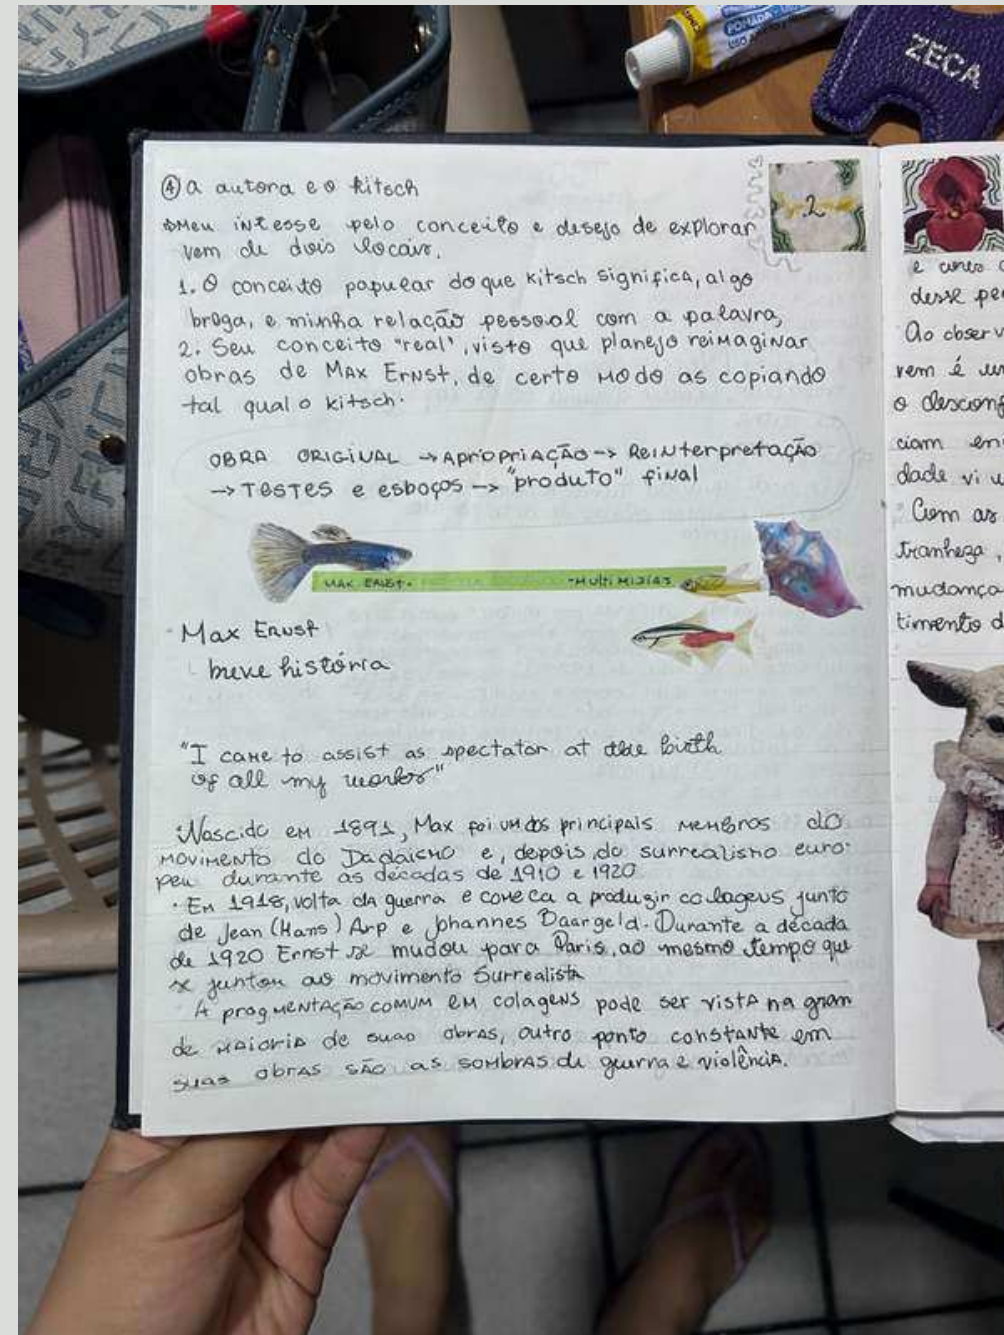 POMADA
ZECA
2
④ a autora e o kitsch
Meu intesse pelo conceito e desejo de explorar
vem de dois locais.
1. O conceito popular do que kitsch significa, algo
brega, e minha relação pessoal com a palavra,
2. Seu conceito "real", visto que planejo reimaginar
obras de Max Ernst, de certo modo as copiando
tal qual o kitsch.
OBRA ORIGINAL → Apropriação → Reinterpretação
→ Testes e esboços → "produto" final
MAX ERNST • • Multimidias
Max Ernst
breve história
"I came to assist as spectator at the birth
of all my works"
Nascido em 1891, Max foi um dos principais membros do
movimento do Dadaismo e, depois, do surrealismo euro-
peu durante as décadas de 1910 e 1920
• Em 1918, volta da guerra e comeca a produzir colagens junto
de Jean (Hans) Arp e Johannes Baargeld. Durante a década
de 1920 Ernst se mudou para Paris, ao mesmo tempo que
se juntou ao movimento Surrealista
A fragmentação comum em colagens pode ser vista na gran
de maioria de suas obras, outro ponto constante em
suas obras são as sombras de guerra e violência.
desse pe
Ao observ
vem é um
o desconf
ciam en
dade vi u
Com as
tranheza,
mudança
timento d